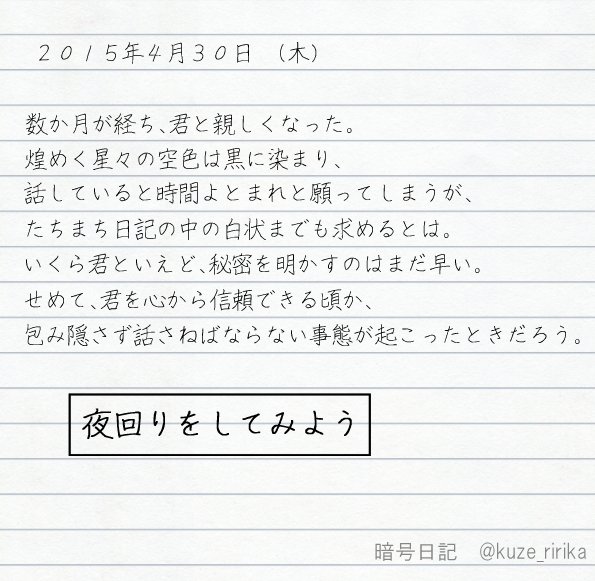 ２０１５年４月３０日　（木）
数か月が経ち、君と親しくなった。
煌めく星々の空色は黒に染まり、
話していると時間よとまれと願ってしまうが、
たちまち日記の中の白状までも求めるとは。
いくら君といえど、秘密を明かすのはまだ早い。
せめて、君を心から信頼できる頃か、
包み隠さず話さねばならない事態が起こったときだろう。
夜回りをしてみよう
暗号日記　@kuze_ririka